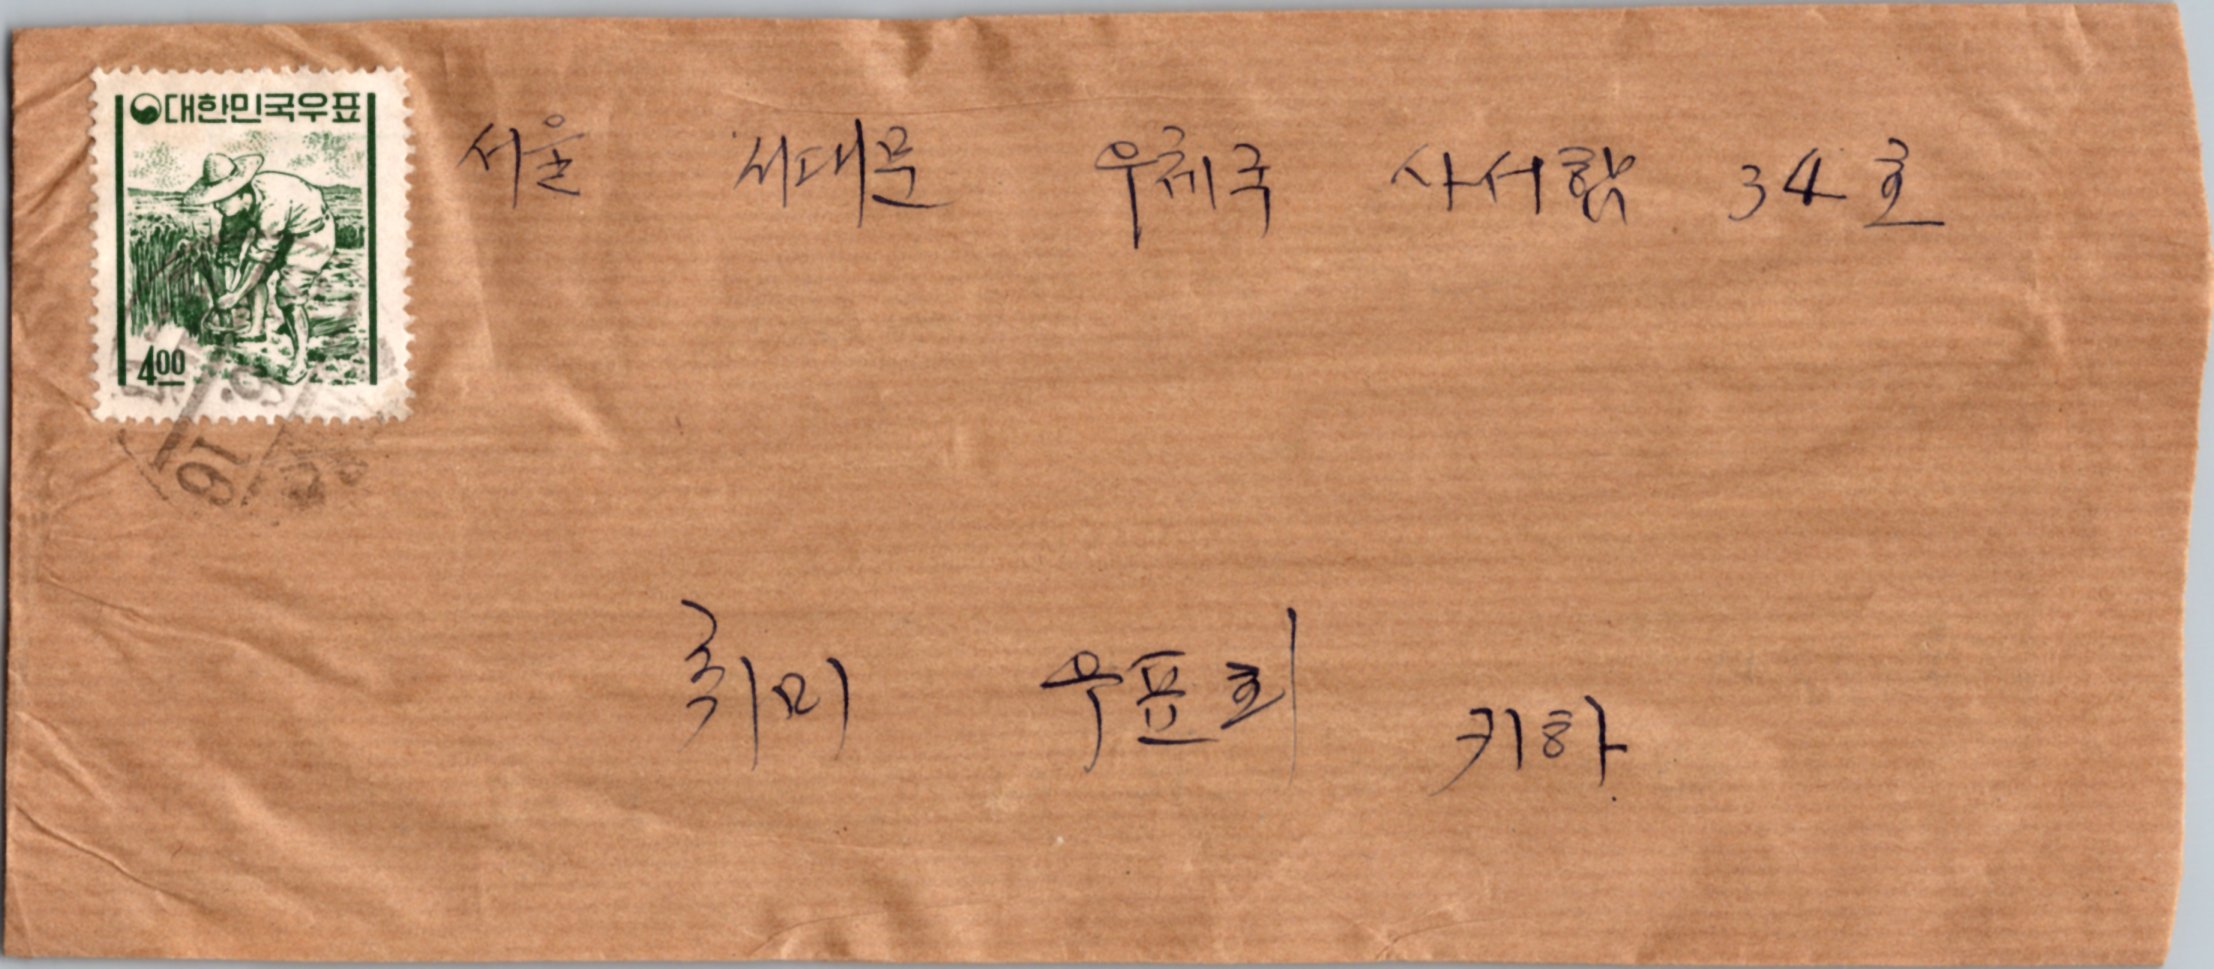 대한민국우표
4.00
서울 서대문 우체국 사서함 34호
취미 우표회 키하
16